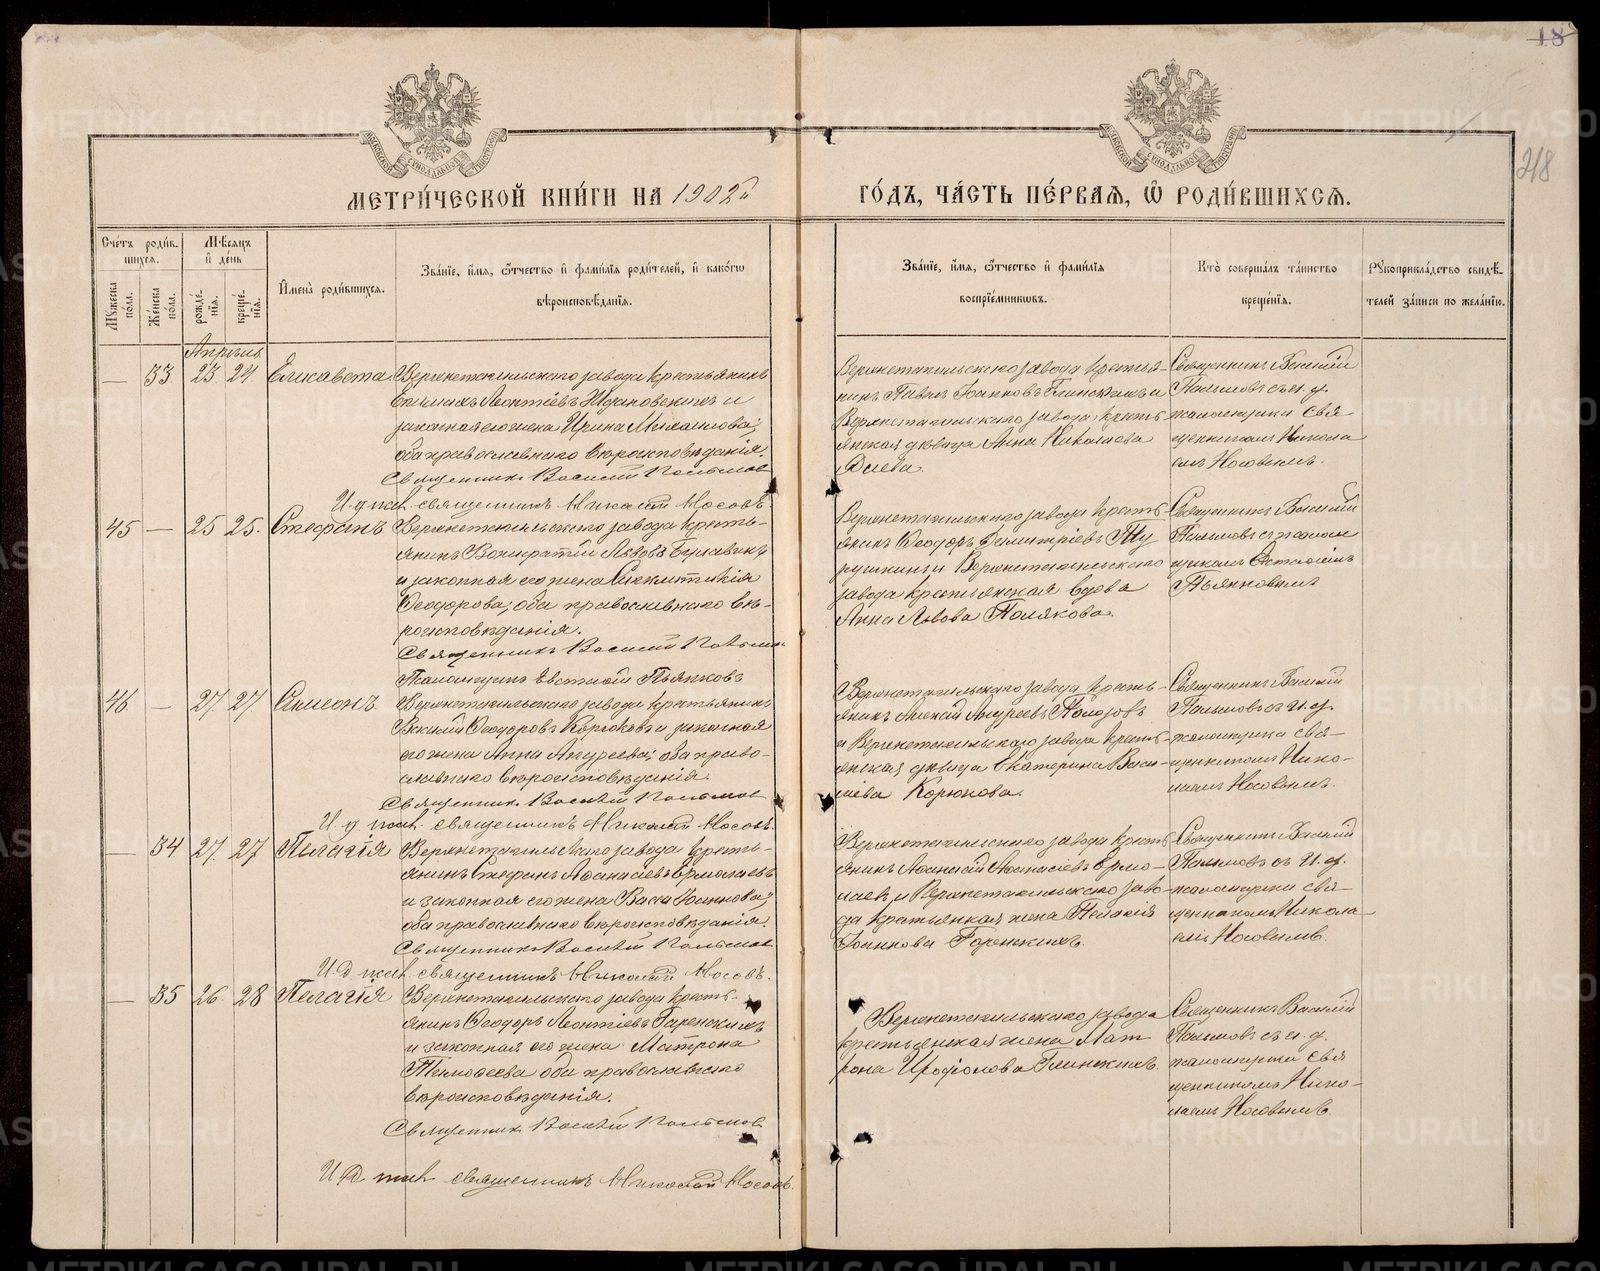 18
218
МЕТРИ́ЧЕСКОЙ КНИ́ГИ НА 1902й ГО́ДЪ, ЧА́СТЬ ПЕ́РВАЯ, Ѡ РОДИ́ВШИХСЯ.
Сче́тъ роди́вшихся.
Му́жеска по́ла.
Же́нска по́ла.
Мѣ́сяцъ и де́нь
рожде́нїя.
креще́нїя.
И́мена̀ роди́вшихся.
Зва́нїе, и́мя, ѻ҆́тчество и҆ фами́лїя роди́телей, и҆ како́гѡ
вѣроисповѣ́данїя.
Зва́нїе, и́мя, ѻ҆́тчество и҆ фами́лїя
воспрїе́мниковъ.
Кто̀ соверша́лъ та́инство
креще́нїя.
Рꙋкоприкла́дство свидѣ́-
телей за́писи по жела́нїю.
Апрѣль
— 33 23 24. Елисавета
Верхнетагильскаго завода крестьянинъ
Леонтіевъ Ждановскихъ и
законная его жена Ирина Михаилова;
оба православнаго вѣроисповѣданія.
Священникъ Василій Пальмовъ
И. д. псал. священникъ Николай Носовъ
Верхнетагильскаго завода крестья-
нинъ Павелъ Іоанновъ Глинскихъ и
Верхнетагильскаго завода кресть-
янская дѣвица Анна Николаева
Священникъ Василій
Пальмовъ съ и. д.
псаломщика свя-
щенникомъ Никола
емъ Носовымъ.
45 — 25 25. Стефанъ
Верхнетагильскаго завода кресть-
янинъ Львовъ
и законная его жена Синклитикія
Ѳеодорова; оба православнаго вѣ-
роисповѣданія.
Священникъ Василій Пальмовъ
Псаломщикъ Евстафій Пьянковъ
Верхнетагильскаго завода кресть-
янинъ Ѳеодоръ Димитріевъ Ту
рушкинъ и Верхнетагильскаго
завода крестьянская вдова
Анна Львова Полякова.
Священникъ Василій
Пальмовъ съ псалом
щикомъ Евстафіемъ
Пьянковымъ
46 — 27. 27 Симеонъ
Верхнетагильскаго завода крестьянинъ
Василій Ѳеодоровъ Корюковъ и законная
его жена Анна Андреева; оба право-
славнаго вѣроисповѣданія.
Священникъ Василій Пальмовъ
И. д. псал. священникъ Николай Носовъ.
Верхнетагильскаго завода кресть-
янинъ Алексій Андреевъ Полозовъ
и Верхнетагильскаго завода кресть-
янская дѣвица Екатерина Васи-
ліева Корюкова.
Священникъ Василій
Пальмовъ съ и. д.
псаломщика свя-
щенникомъ Нико-
лаемъ Носовымъ.
— 34 27. 27 Пелагія
Верхнетагильскаго завода кресть-
янинъ Стефанъ Аѳанасіевъ Ермолаевъ
и законная его жена Васса Іоаннова;
оба православнаго вѣроисповѣданія.
Священникъ Василій Пальмовъ
И. д. псал. священникъ Николай Носовъ.
Верхнетагильскаго завода кресть-
янинъ Аѳанасій Аѳанасіевъ Ермо-
лаевъ и Верхнетагильскаго заво-
да крестьянская жена Пелагія
Іоаннова Горенскихъ.
Священникъ Василій
Пальмовъ съ и. д.
псаломщика свя-
щенникомъ Никола-
емъ Носовымъ.
— 35 26. 28 Пелагія
Верхнетагильскаго завода кресть-
янинъ Ѳеодоръ Леонтіевъ Горенскихъ
и законная его жена Матрона
Тимоѳеева оба православнаго
вѣроисповѣданія.
Священникъ Василій Пальмовъ
И. д. псал. священникъ Николай Носовъ.
Верхнетагильскаго завода
крестьянская жена Мат
рона Иродіонова Глинскихъ.
Священникъ Василій
Пальмовъ съ и. д.
псаломщика свя
щенникомъ Нико-
лаемъ Носовымъ.
METRIKI.GASO-URAL.RU